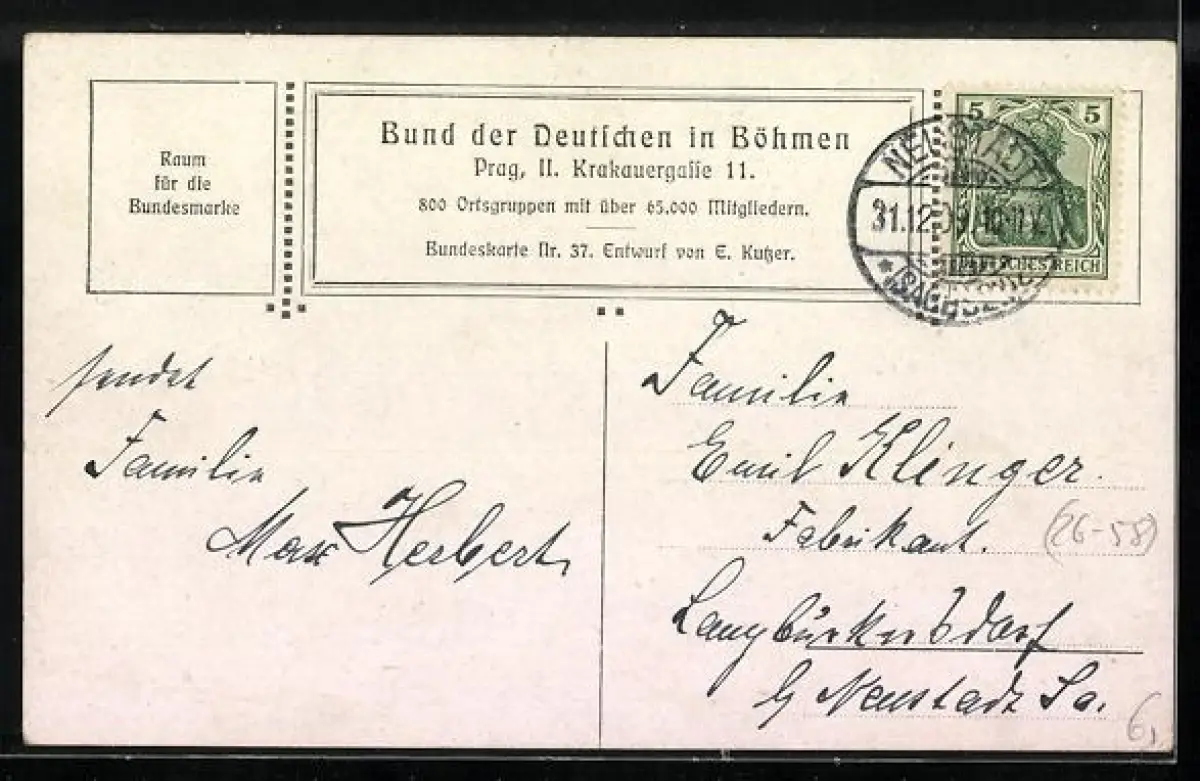 Raum
für die
Bundesmarke
Bund der Deutschen in Böhmen
Prag, II. Krakauergasse 11.
800 Ortsgruppen mit über 65.000 Mitgliedern.
Bundeskarte Nr. 37. Entwurf von E. Kutzer.
5 5
DEUTSCHES REICH
NEUSTADT
31.12.09
* (SACHSEN)
sendet
Familie
Max Herbert,
Familie
Emil Klinger.
Fabrikant.
(26-58)
Langburkersdorf
b/ Neustadt Sa.